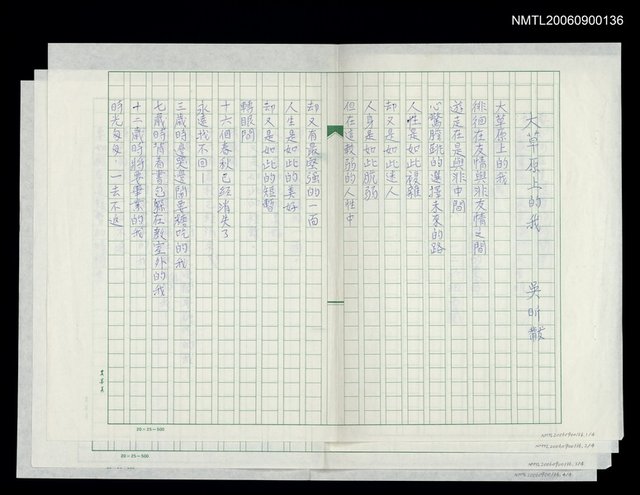 NMTL20060900136
大草原上的我
吳昕黻
大草原上的我
徘徊在友情與非友情之間
遊走在是與非中間
心驚膽跳的選擇未來的路
人性是如此複雜
卻又是如此迷人
人身是如此脆弱
但在這軟弱的人性中
卻又有最堅強的一面
人生是如此的美好
卻又是如此的短暫
轉眼間
十六個春秋已經消失了
永遠找不回！
三歲時還要邊鬧要糖吃的我
七歲時背著書包躲在教室外的我
十二歲時將要畢業的我
時光匆匆，一去不返
20×25=500
20×25=500
NMTL20060900136, 1/4
NMTL20060900136, 2/4
NMTL20060900136, 3/4
NMTL20060900136, 4/4